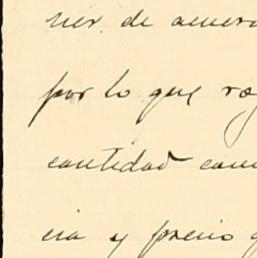 ner de acuer
por lo que ro
cantidad com
cia y precio q